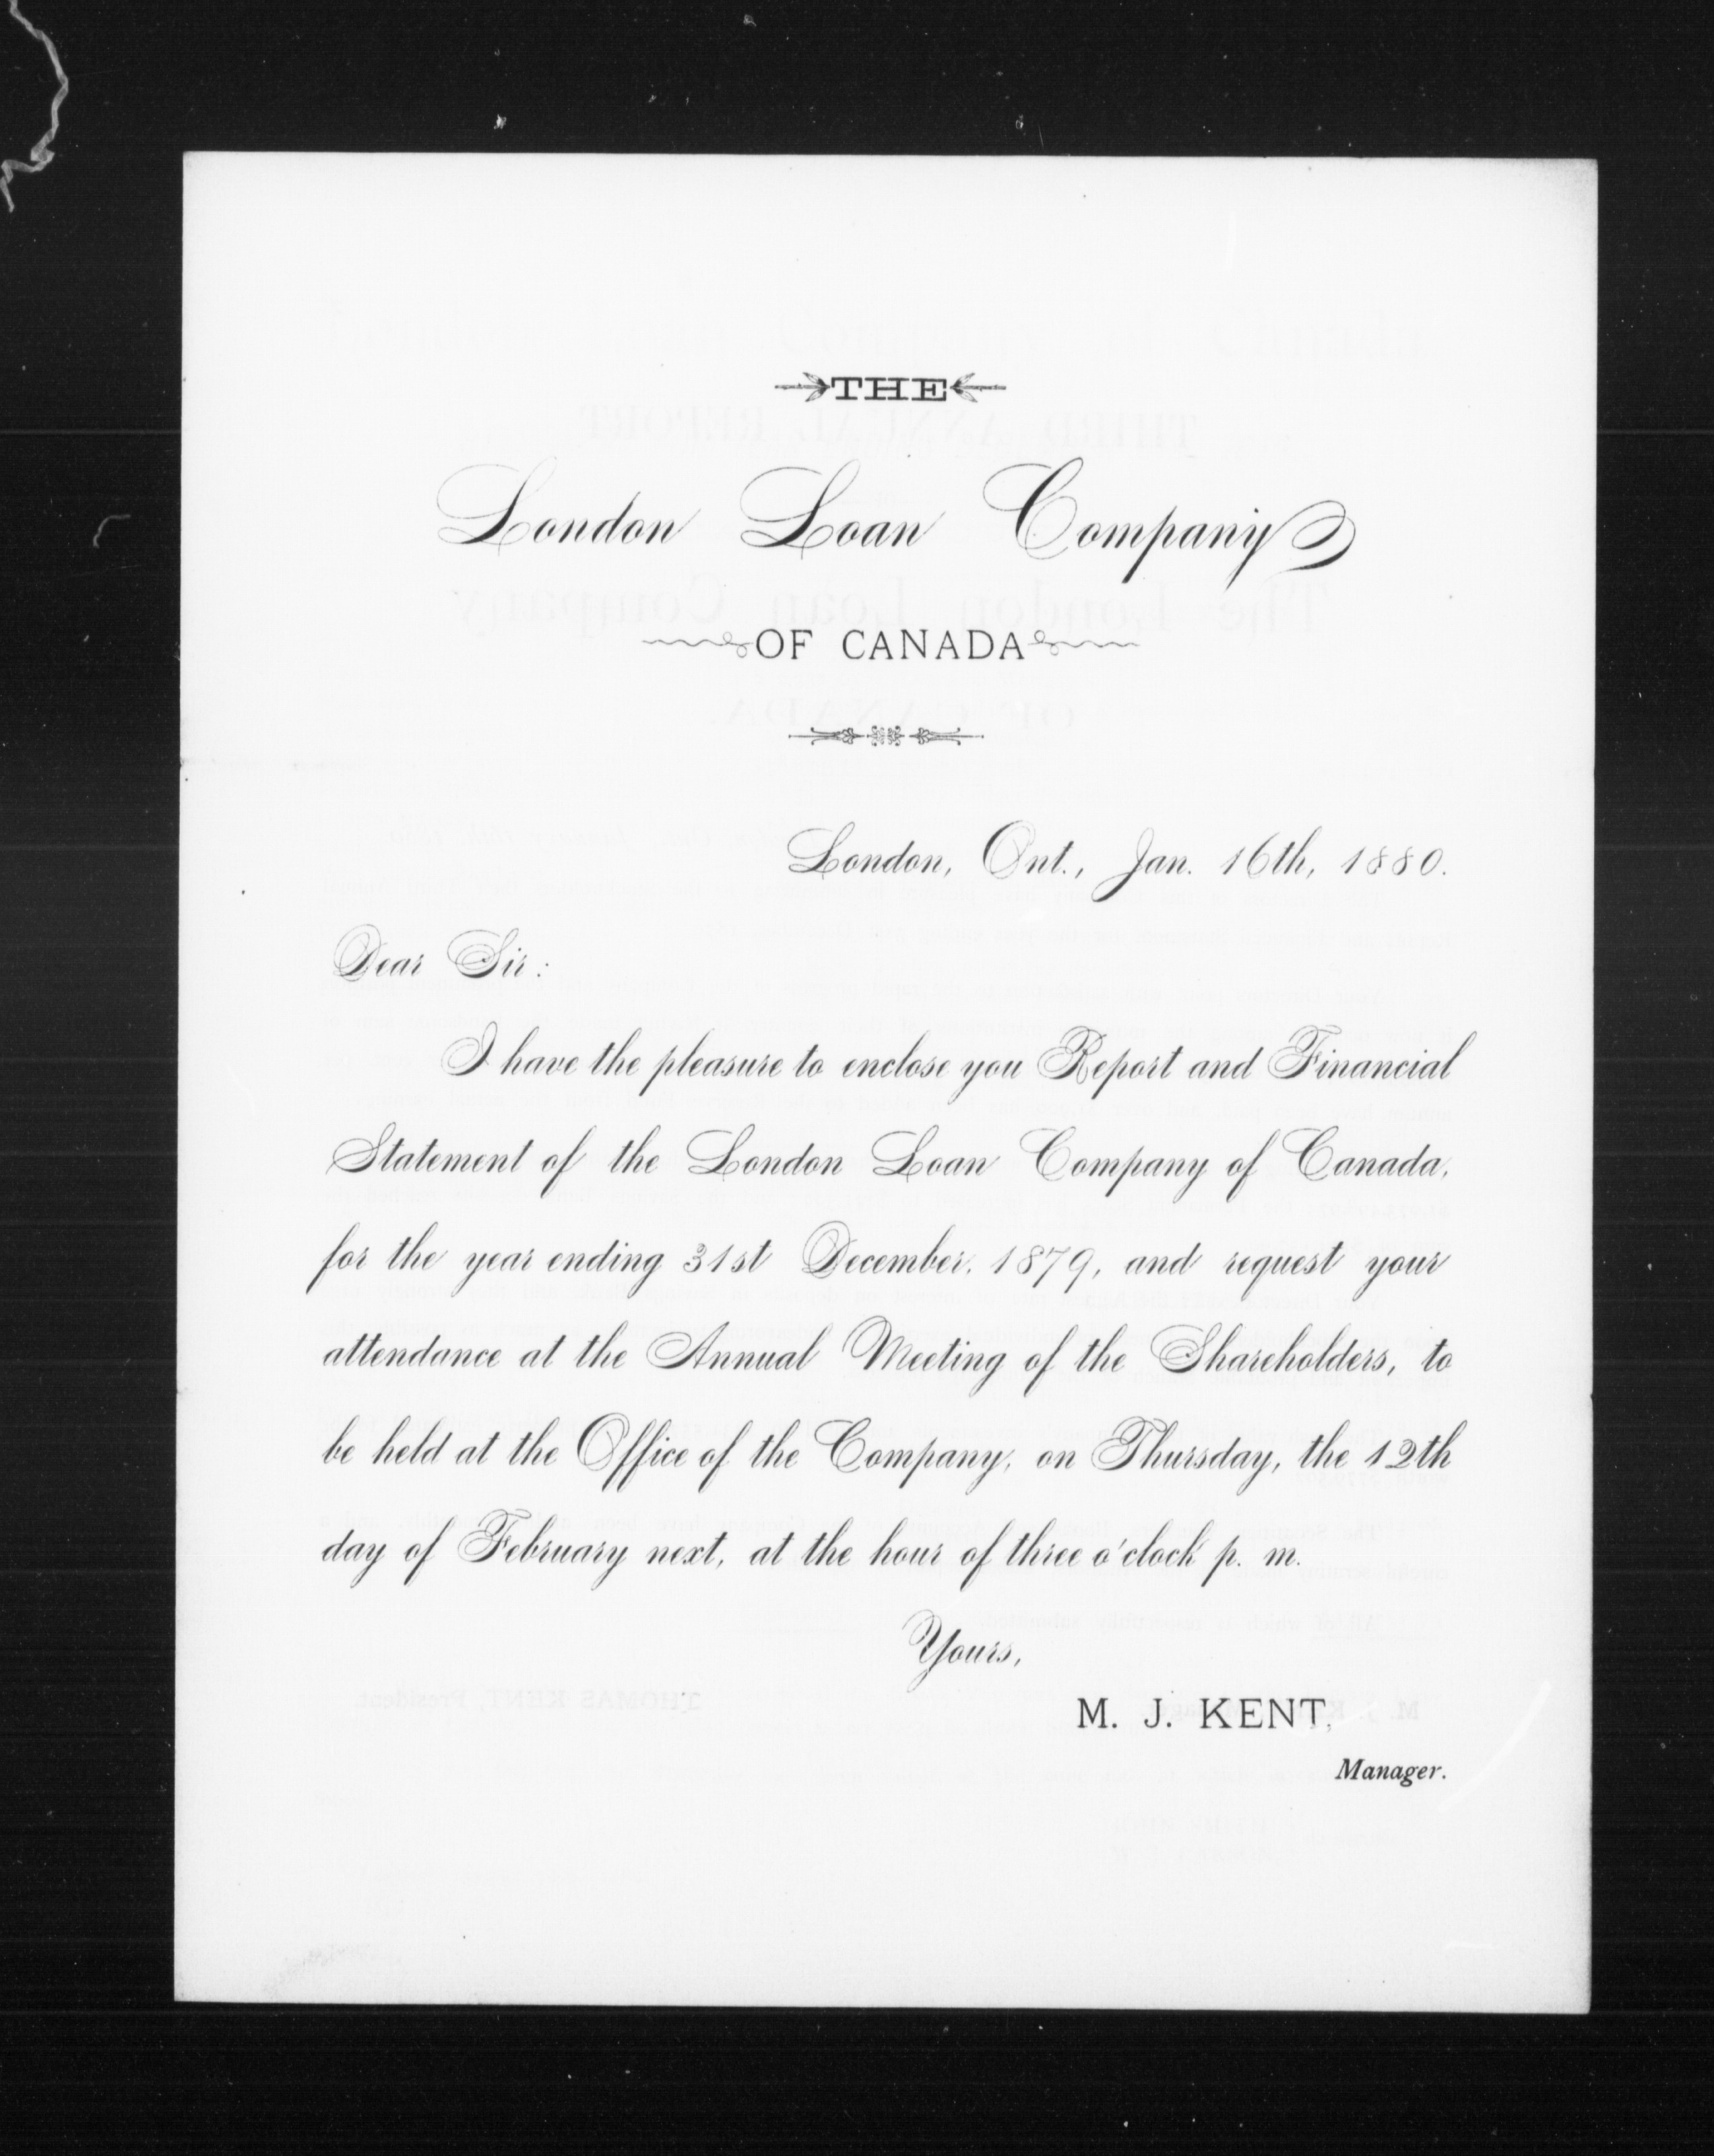 THE
London Loan Company
OF CANADA
London, Ont., Jan. 16th, 1880.
Dear Sir:
I have the pleasure to enclose you Report and Financial
Statement of the London Loan Company of Canada,
for the year ending 31st December, 1879, and request your
attendance at the Annual Meeting of the Shareholders, to
be held at the Office of the Company, on Thursday, the 12th
day of February next, at the hour of three o'clock p. m.
Yours,
M. J. KENT,
Manager.